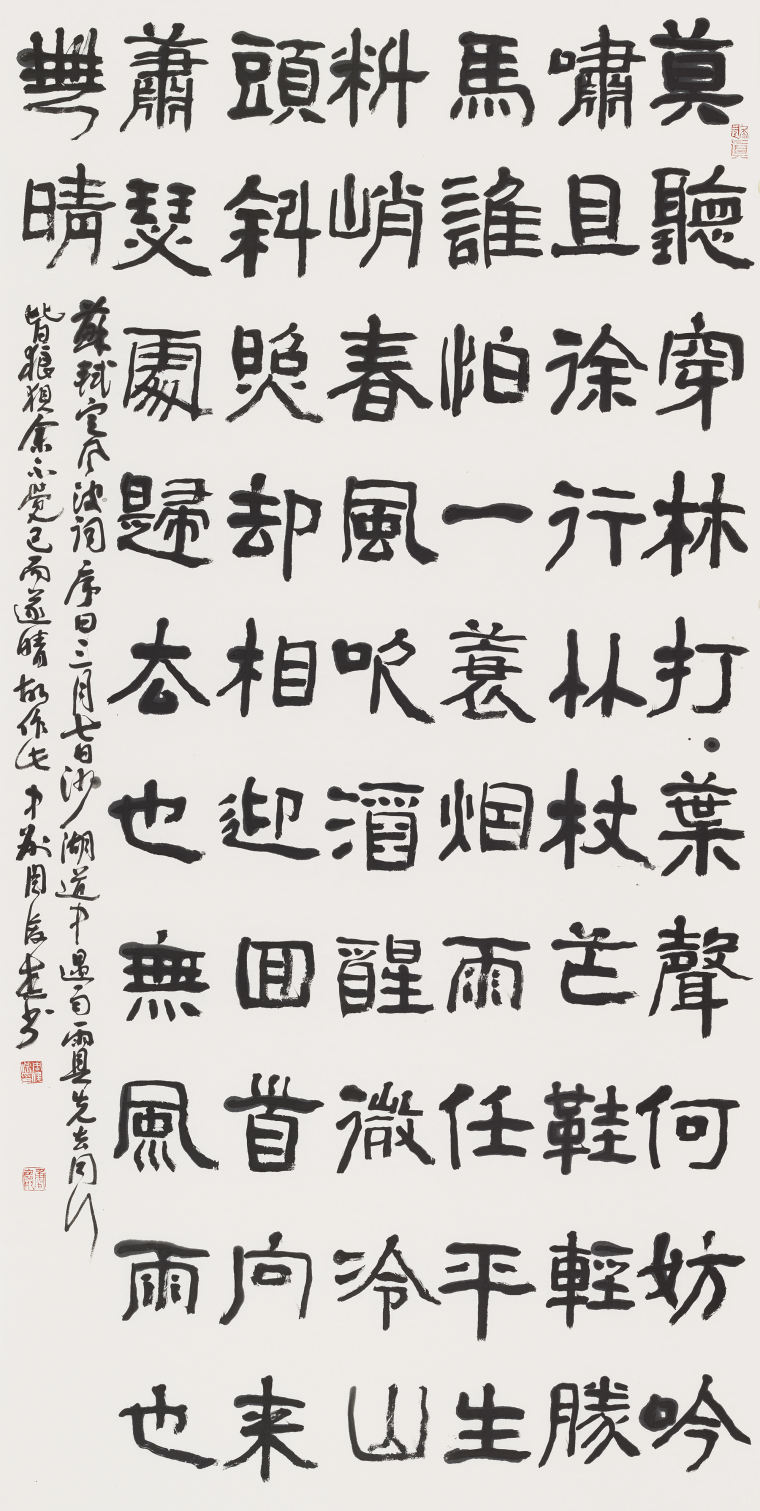 莫聽穿林打葉聲何妨吟
嘯且徐行竹杖芒鞋輕勝
馬誰怕一蓑烟雨任平生
料峭春風吹酒醒微冷山
頭斜照却相迎回首向来
蕭瑟處歸去也無風雨也
無晴
蘇軾定风波詞序曰三月七日沙湖道中遇雨雨具先去同行
皆狼狽余不覺已而遂晴故作此中州周俊杰书